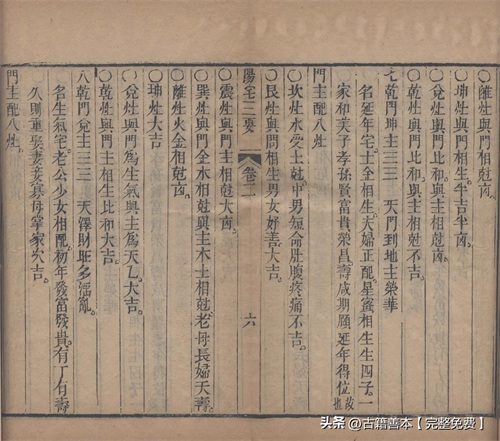 ○離灶與門相尅凶
○坤灶與門相生半吉半凶
○兌灶與門比和與主相尅凶
○乾灶與門比和與主相尅不吉
七乾門坤主☰☷ 天門到地主榮華
名延年宅土金相生夫婦正配星宮相生生四子一
家和美子孝孫賢富貴榮昌壽咸期頤延年得位故也
門主配八灶
○坎灶水受土尅中男短命肚腹疼痛不吉
○艮灶與門相生男女好善大吉
陽宅三要
卷二
十六
○震灶與門主相尅大凶
○巽灶與門金木相尅與主木土相尅老母長婦夭壽
○離灶火金相尅凶
○坤灶大吉
○兌灶與門爲生氣與主爲天乙大吉
○乾灶與門主相生比和大吉
八乾門兌主☰☱ 天澤財旺多淫亂
名生氣宅老公少女相配初年發富發貴有丁有壽
久則重娶妻妾寡母掌家欠吉
門主配八灶
头条 @古籍善本【完整免费】